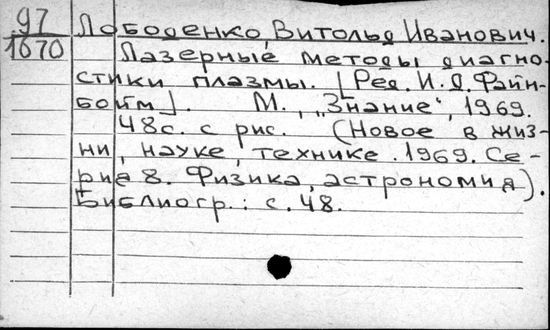 97
1670
Лободенко, Витольд Иванович.
Лазерные методы диагно-
стики плазмы. [Ред. И.Д. Файн-
бойм]. М., „Знание“, 1969.
48 с. с рис. (Новое в жиз-
ни, науке, технике. 1969. Се-
рия 8. Физика, астрономия).
Библиогр.: с. 48.